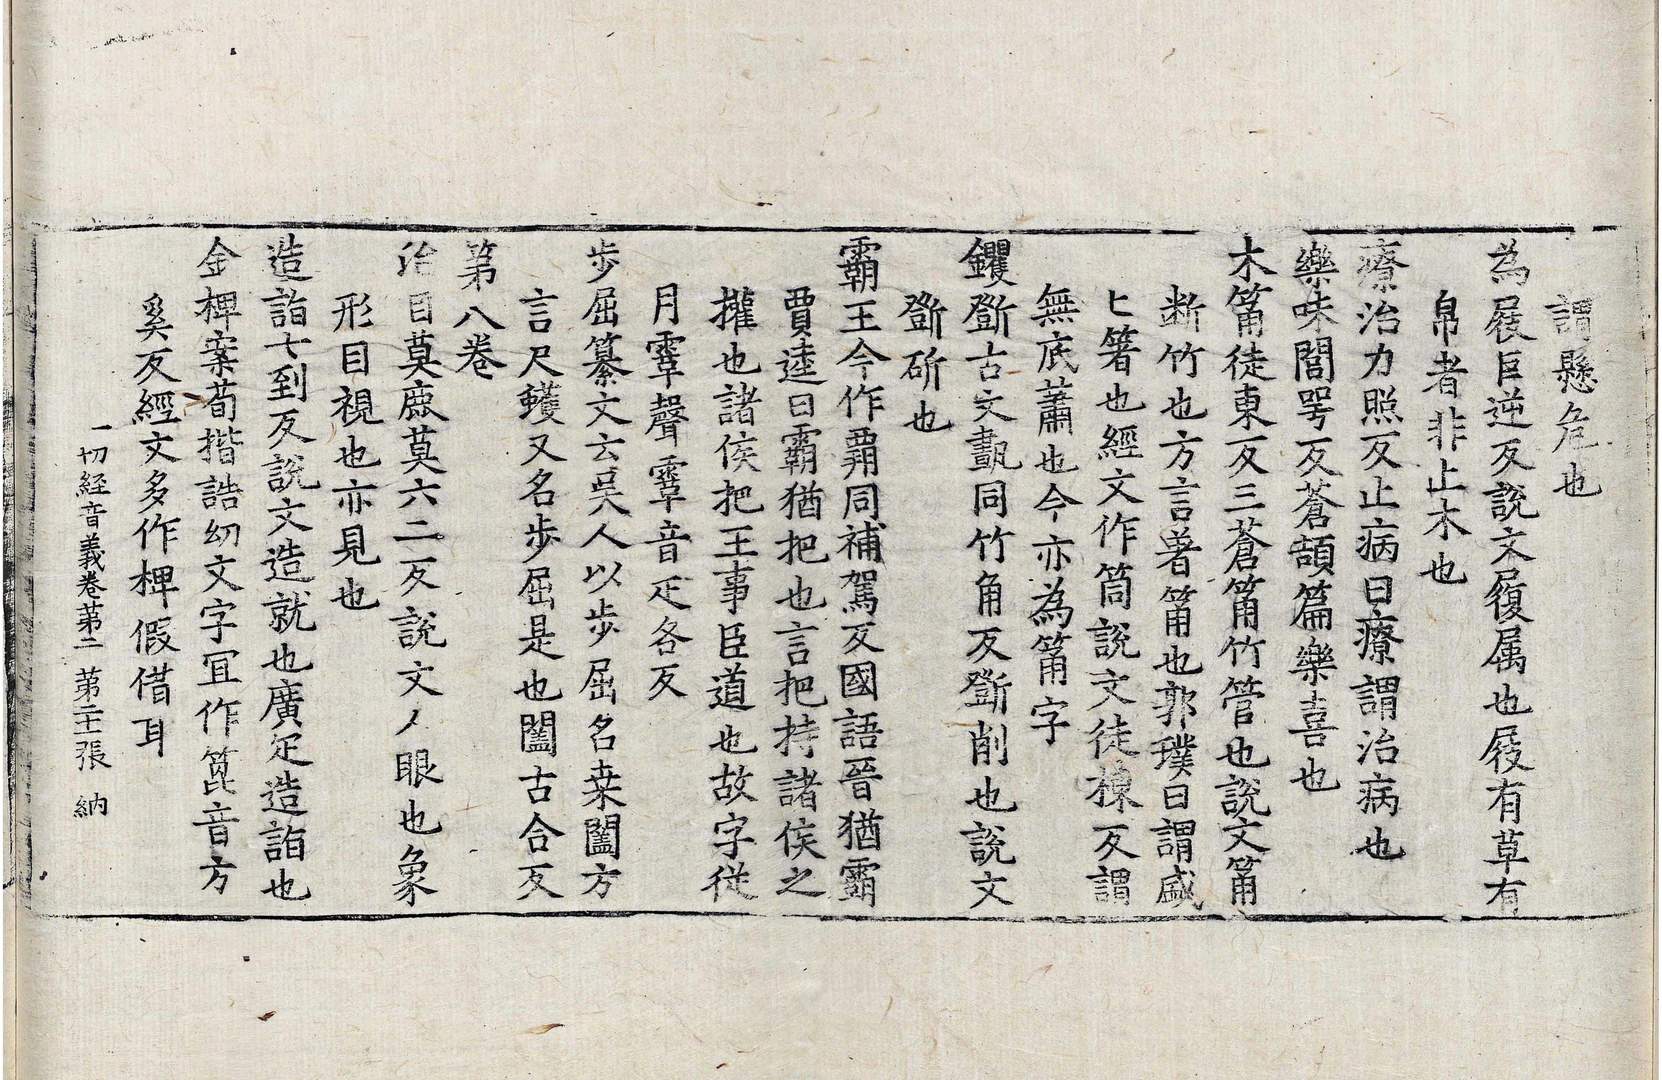 謂懸危也
為屐巨逆反說文履属也屐有草有
帛者非止木也
療治力照反止病曰療謂治病也
樂味閻咢反蒼頡篇樂喜也
木筩徒東反三蒼筩竹管也說文筩
断竹也方言箸筩也郭璞曰謂盛
匕箸也經文作筒說文徒棟反謂
無底簫也今亦為筩字
钁斲古文㔁同竹角反斲削也說文
斲斫也
霸王今作覇同補駕反國語晉猶霸
賈逵曰霸猶把也言把持諸侯之
攉也諸侯把王事臣道也故字従
月䨣聲䨣音疋各反
歩屈纂文云吳人以歩屈名桒闔方
言尺蠖又名歩屈是也闔古合反
第八卷
治目莫鹿莫六二反說文人眼也象
形目視也亦見也
造詣七到反說文造就也廣疋造詣也
金椑案荀揩誥㓜文字冝作箆音方
奚反經文多作椑假借耳
一切經音義卷第二 第二十張 納